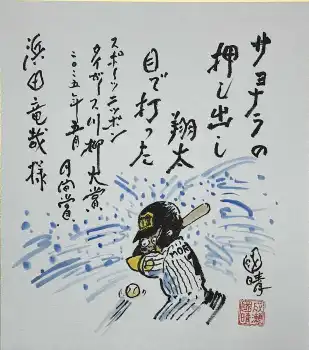 サヨナラの
押し出し
翔太
目で打った
スポーツニッポン
タイガース川柳大賞
二〇二五年五月
月間賞
濱田竜哉様